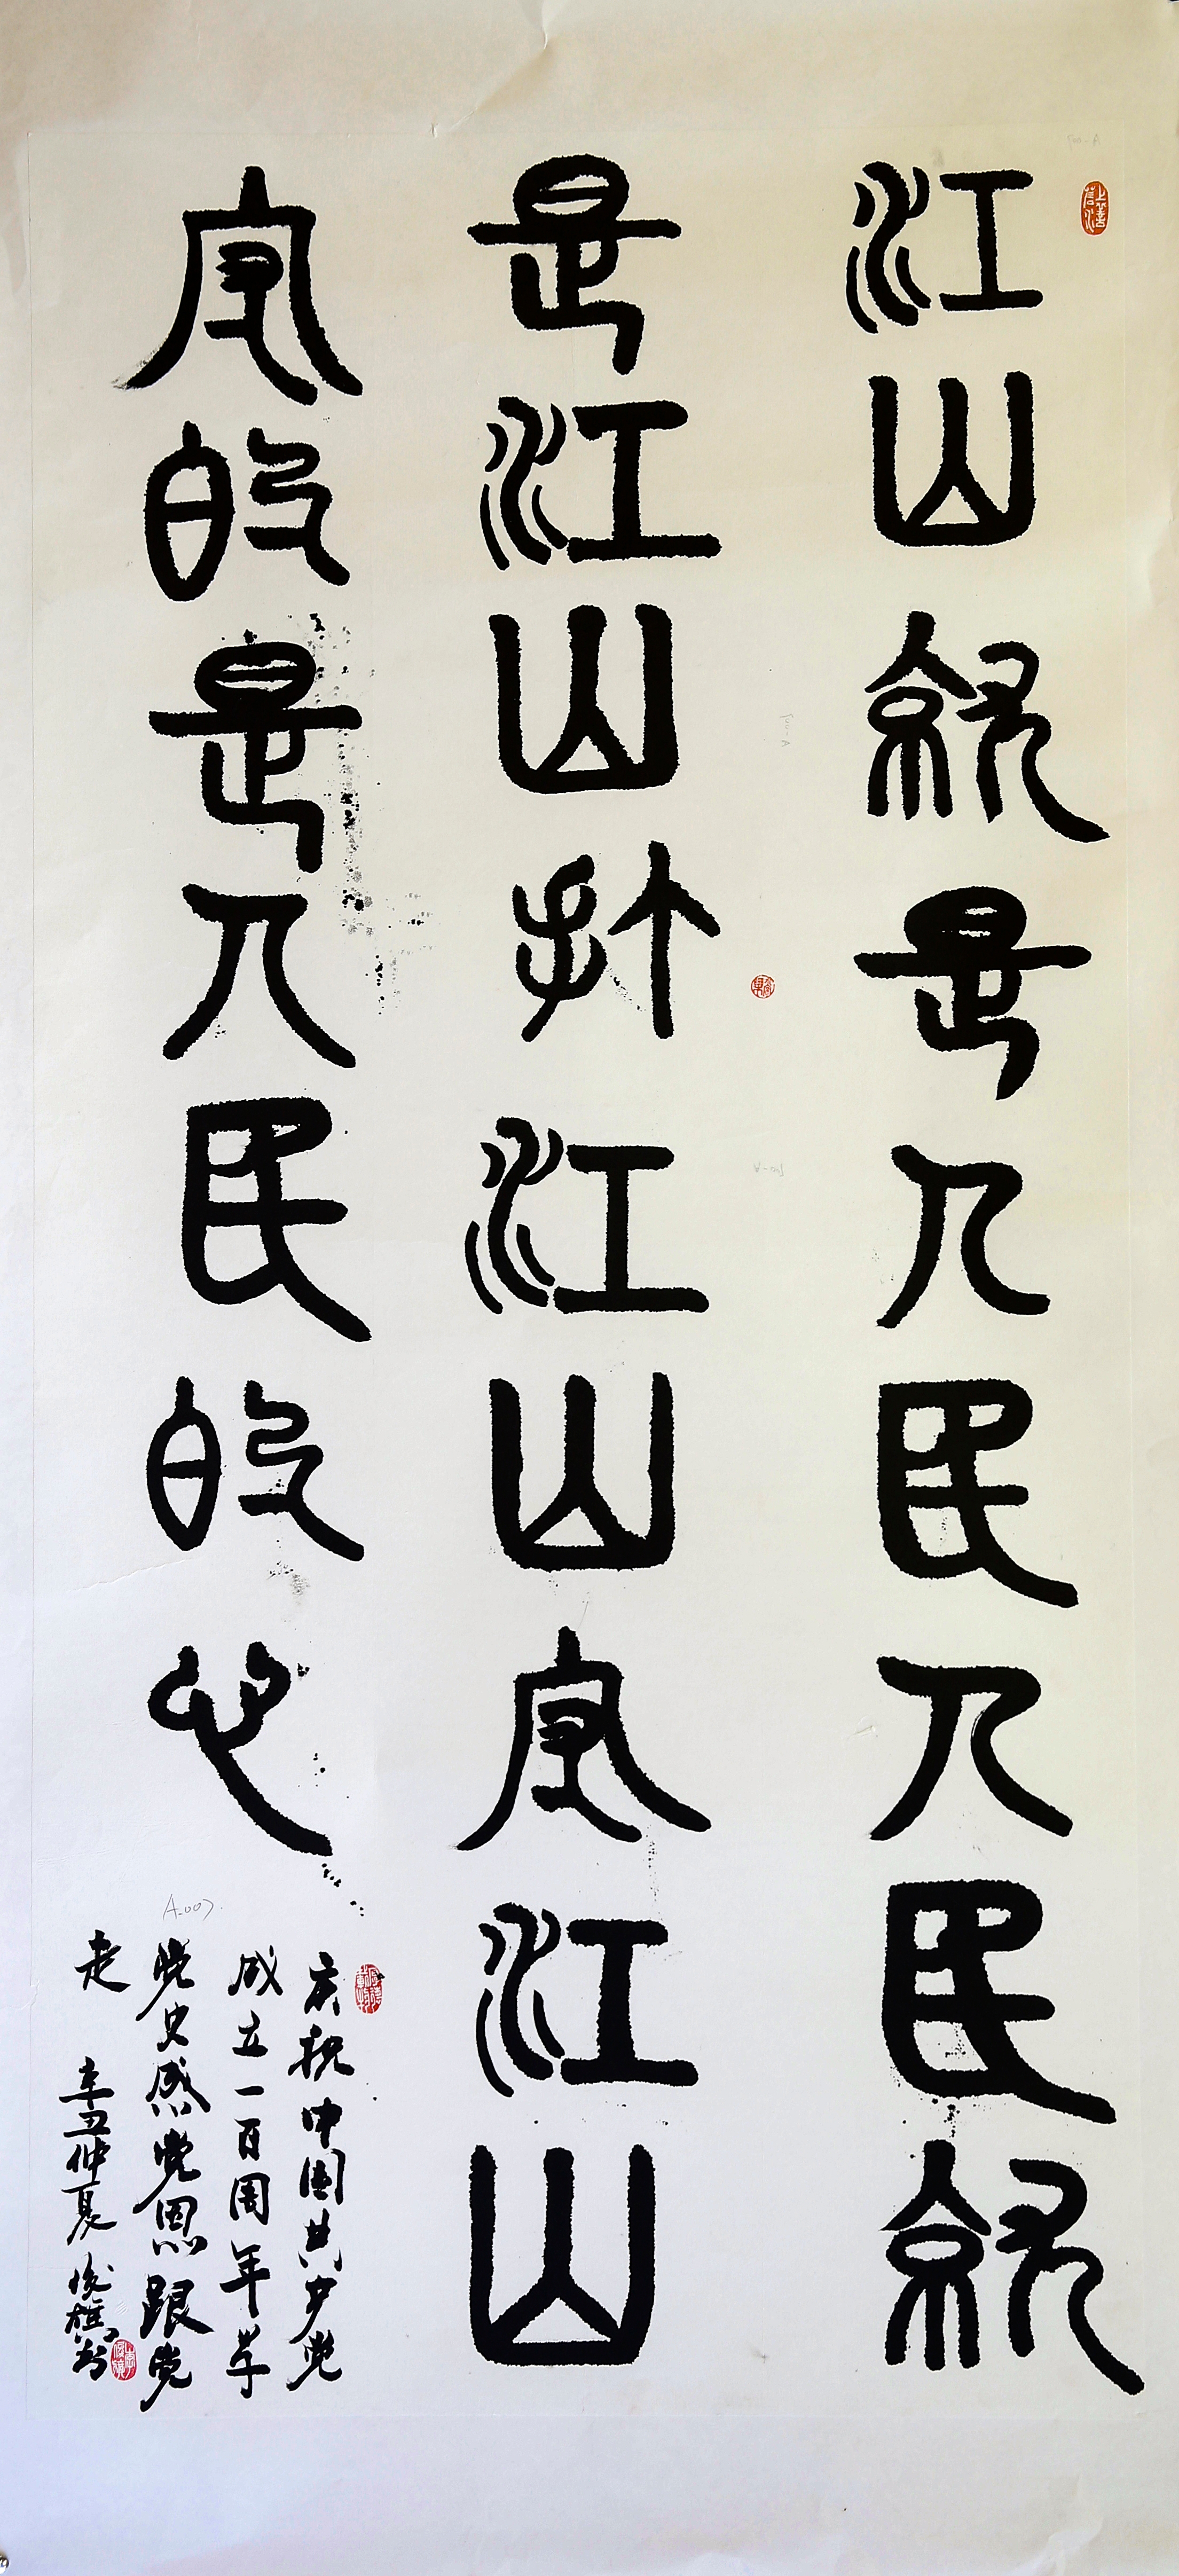 江山就是人民人民就
是江山打江山守江山
守的是人民的心
庆祝中国共产党
成立一百周年学
党史感党恩跟党
走 辛丑仲夏 俊雄书
上善若水
A-007